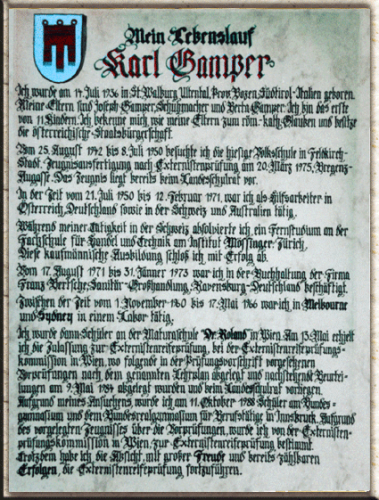 Mein Lebenslauf
Karl Gamper
Ich wurde am 14. Juli 1936 in St. Walburg, Ultental, Prov. Bozen, Südtirol-Italien geboren.
Meine Eltern sind Joseph Gamper, Schuhmacher und Berta Gamper. Ich bin das erste
von 11 Kindern. Ich bekenne mich, wie meine Eltern zum röm.-kath. Glauben und besitze
die österreichische Staatsbürgerschaft.
Vom 25. August 1942 bis 8. Juli 1950 besuchte ich die hiesige Volksschule in Feldkirch-
Stadt. Zeugnisausfertigung nach Externistenprüfung am 20. März 1975, Bregenz-
Augasse. Das Zeugnis liegt bereits beim Landesschulrat vor.
In der Zeit vom 21. Juli 1950 bis 12. Februar 1971, war ich als Hilfsarbeiter in
Österreich, Deutschland sowie in der Schweiz und Australien tätig.
Während meiner Tätigkeit in der Schweiz absolvierte ich ein Fernstudium an der
Fachschule für Handel und Technik am Institut Mössinger, Zürich.
Diese kaufmännische Ausbildung schloß ich mit Erfolg ab.
Vom 17. August 1971 bis 31. Jänner 1973 war ich in der Buchhaltung der Firma
Franz Bertsche, Sanitär-Großhandlung, Ravensburg-Deutschland beschäftigt.
Zwischen der Zeit vom 1. November 1960 bis 17. Mai 1966 war ich in Melbourne
und Sydney in einem Labor tätig.
Ich wurde dann Schüler an der Maturaschule "Dr. Roland" in Wien. Am 13. Mai erhielt
ich die Zulassung zur Externistenreifeprüfung, bei der Externistenreifeprüfungs-
kommission in Wien, wo folgende in der Prüfungsvorschrift vorgesehenen
Vorprüfungen nach dem genannten Lehrplan abgelegt und nachstehende Beurtei-
lungen am 9. Mai abgelegt wurden und beim Landesschulrat vorliegen.
Aufgrund meines Ansuchens, wurde ich am 11. Oktober 1988 Schüler am Bundes-
gymnasium und dem Bundesrealgymnasium für Berufstätige in Innsbruck. Aufgrund
des vorgelegten Zeugnisses über die Vorprüfungen, wurde ich von der Externisten-
prüfungskommission in Wien, zur Externistenreifeprüfung bestimmt.
Trotzdem habe ich die Absicht, mit großer Freude und bereits zählbaren
Erfolgen, die Externistenreifeprüfung fortzuführen.